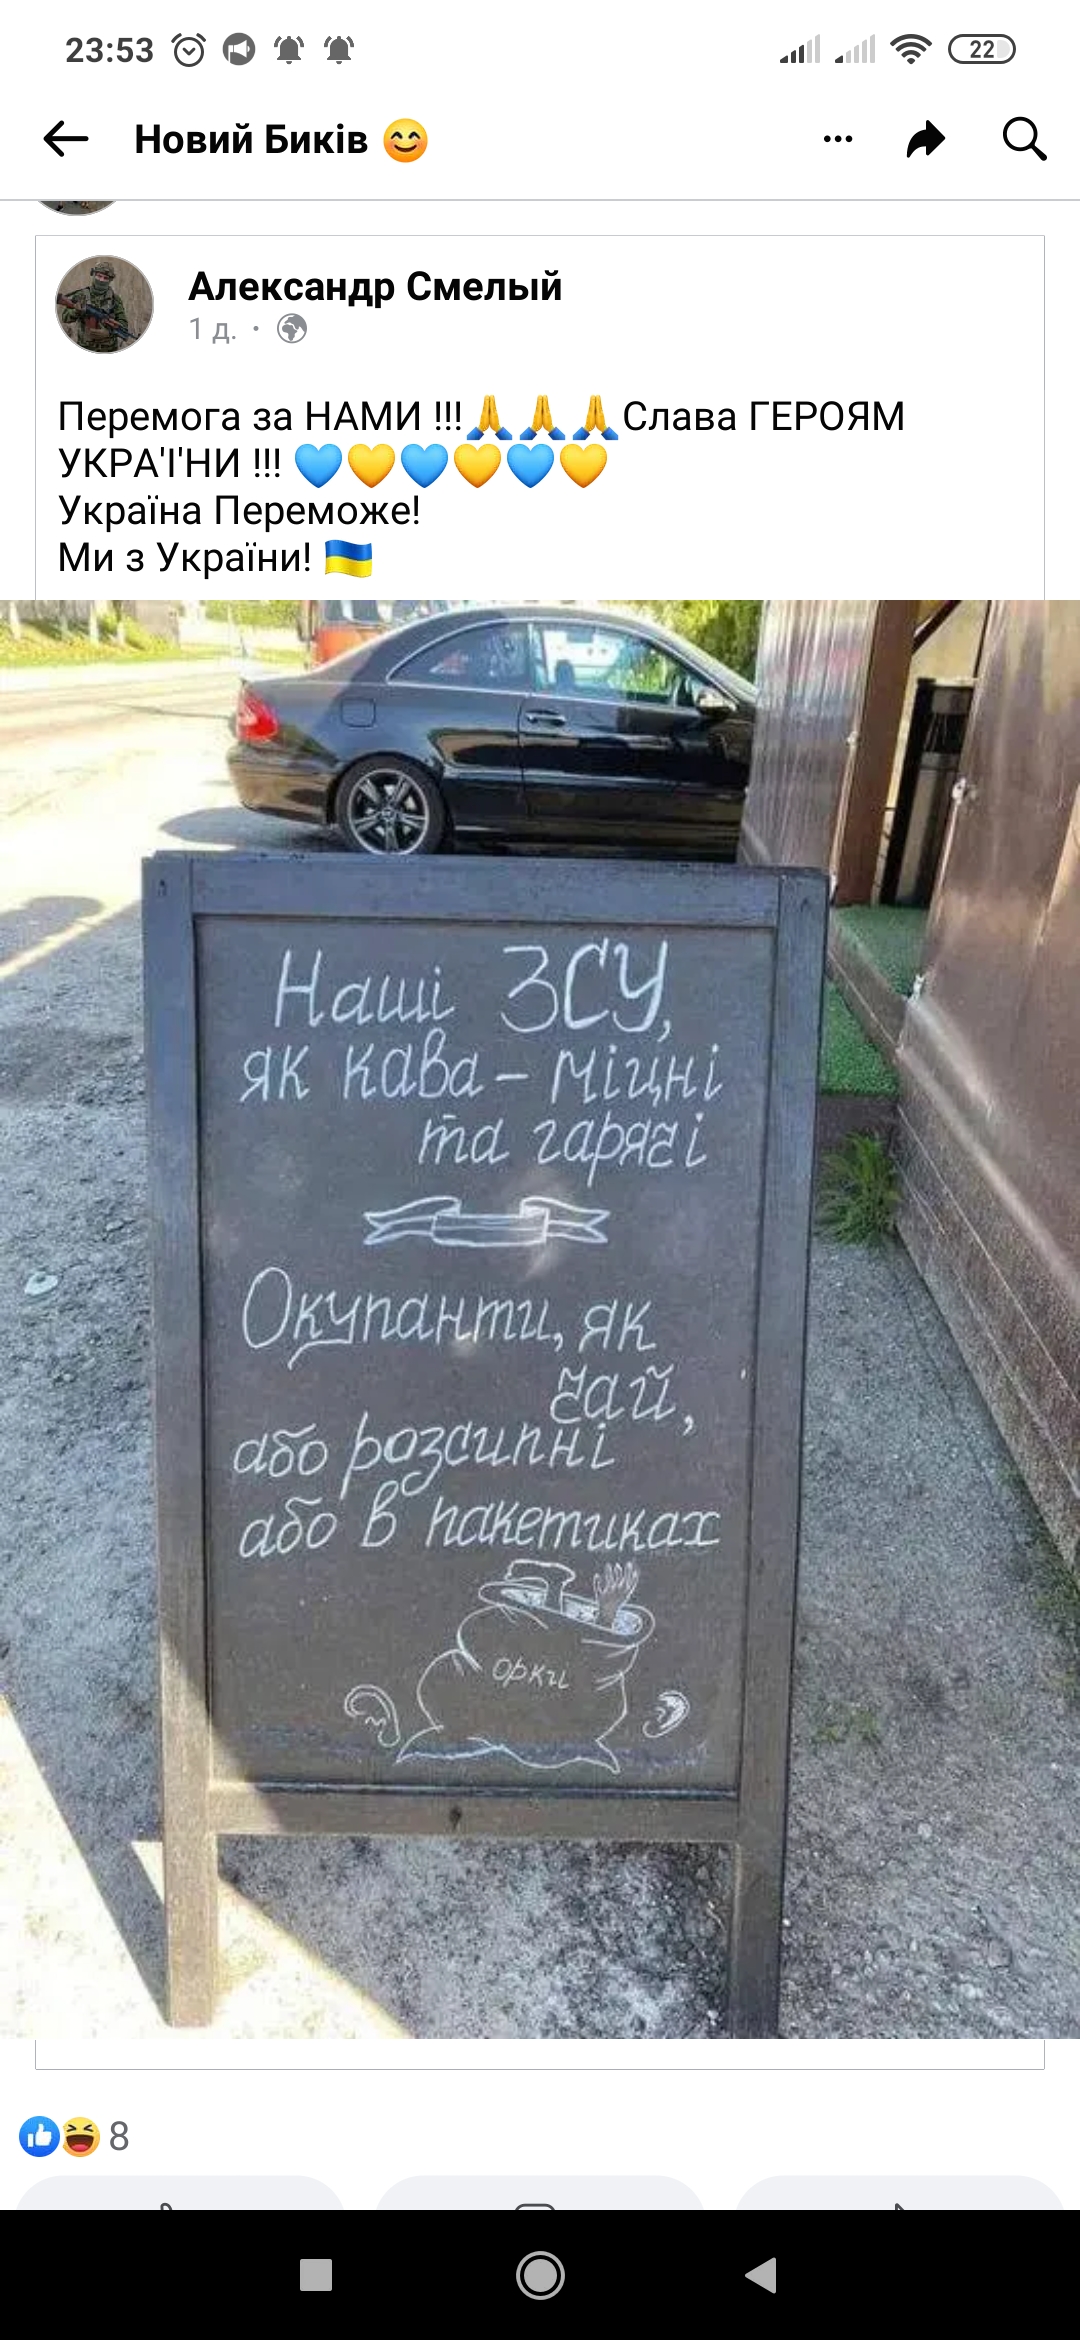 23:53
22
Новий Биків 😊
Александр Смелый
1 д. ·
Перемога за НАМИ !!!🙏🙏🙏Слава ГЕРОЯМ
УКРА'І'НИ !!! 💙💛💙💛💙💛
Україна Переможе!
Ми з України! 🇺🇦
Наші ЗСУ,
як кава - міцні
та гарячі
Окупанти, як
чай,
або розсипні
або в пакетиках
орки
8